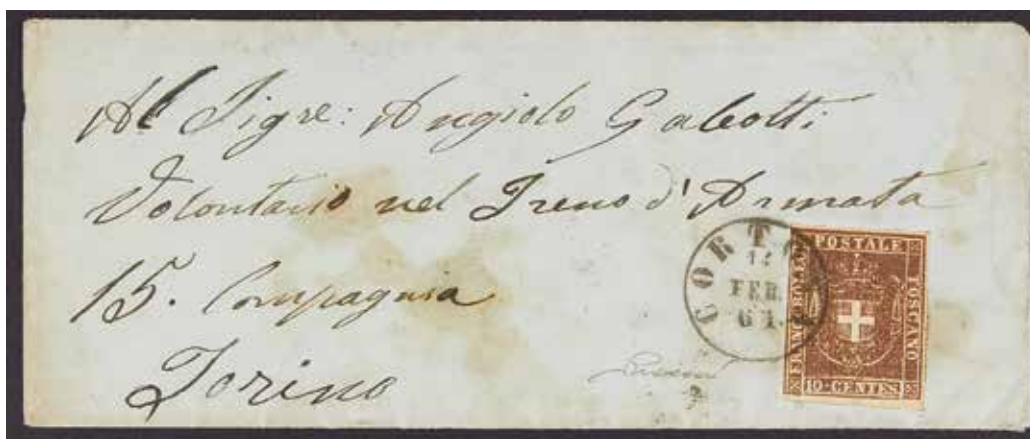 Al Sigre: Angiolo Galeotti
Volontario nel Treno d'Armata
15. Compagnia
Torino
CORTO
14
FEB.
61.
FRANCOBOLLO
POSTALE
TOSCANO
10 CENTES